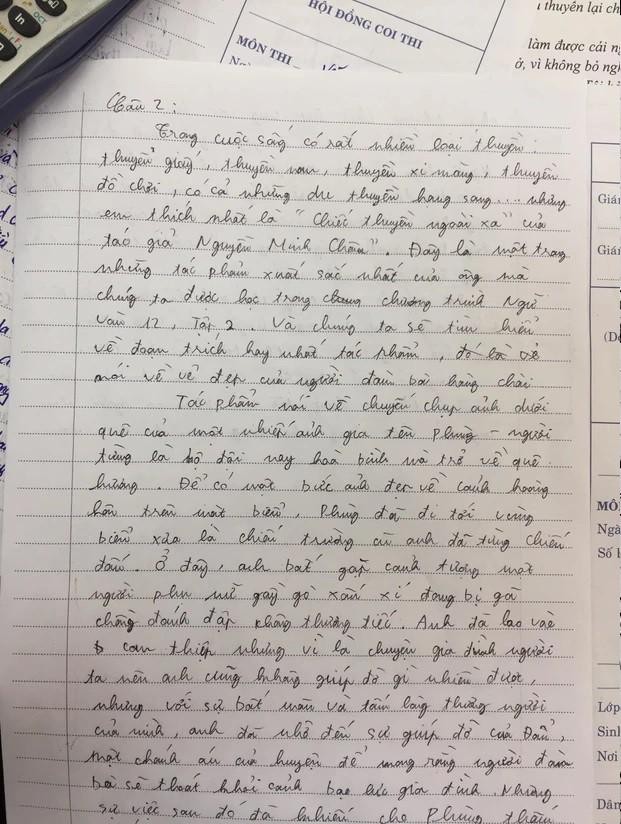 HỘI ĐỒNG COI THI
MÔN THI
ì thuyền lại ch
làm được cái ng
ở, vì không bỏ ng
Câu 2 :
Trong cuộc sống có rất nhiều loại thuyền :
thuyền giấy, thuyền nan, thuyền xi măng, thuyền
đồ chơi, có cả những du thuyền hạng sang.... nhưng
em thích nhất là "Chiếc thuyền ngoài xa" của
tác giả Nguyễn Minh Châu". Đây là một trong
những tác phẩm xuất sắc nhất của ông mà
chúng ta được học trong chương trình Ngữ
Văn 12, Tập 2. Và chúng ta sẽ tìm hiểu
về đoạn trích hay nhất tác phẩm, đó là
nói về vẻ đẹp của người đàn bà hàng chài.
Tác phẩm nói về chuyến chụp ảnh dưới
quê của một nhiếp ảnh gia tên Phùng - người
từng là bộ đội nay hoà bình và trở về quê
hương. Để có một bức ảnh đẹp về cảnh hoàng
hôn trên mặt biển, Phùng đã đi tới vùng
biển xưa là chiến trường cũ anh đã từng chiến
đấu. Ở đây, anh bắt gặp cảnh tượng một
người phụ nữ gầy gò xấu xí đang bị gã
chồng đánh đập không thương tiếc. Anh đã lao vào
can thiệp nhưng vì là chuyện gia đình người
ta nên anh cũng không giúp đỡ gì nhiều được,
nhưng với sự bất mãn và tấm lòng thương người
của mình, anh đã nhờ đến sự giúp đỡ của Đẩu,
một chánh án của huyện để mong rằng người đàn
bà sẽ thoát khỏi cảnh bạo lực gia đình. Nhưng
sự việc sau đó đã khiến cho Phùng thấm
Giám
Giám
MÔ
Ngà
Số b
Lớp
Sinh
Nơi
Dân